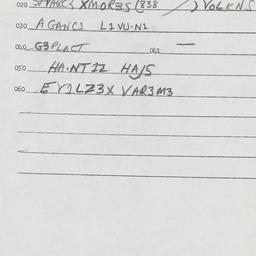 020 XMORES (838 / ) VOLKNS
030 AGANCI L1VU·N1
040 G3PLACT 041 —
050 HA·NT1Z HAJS
060 EV1LZ3X VAR3M3